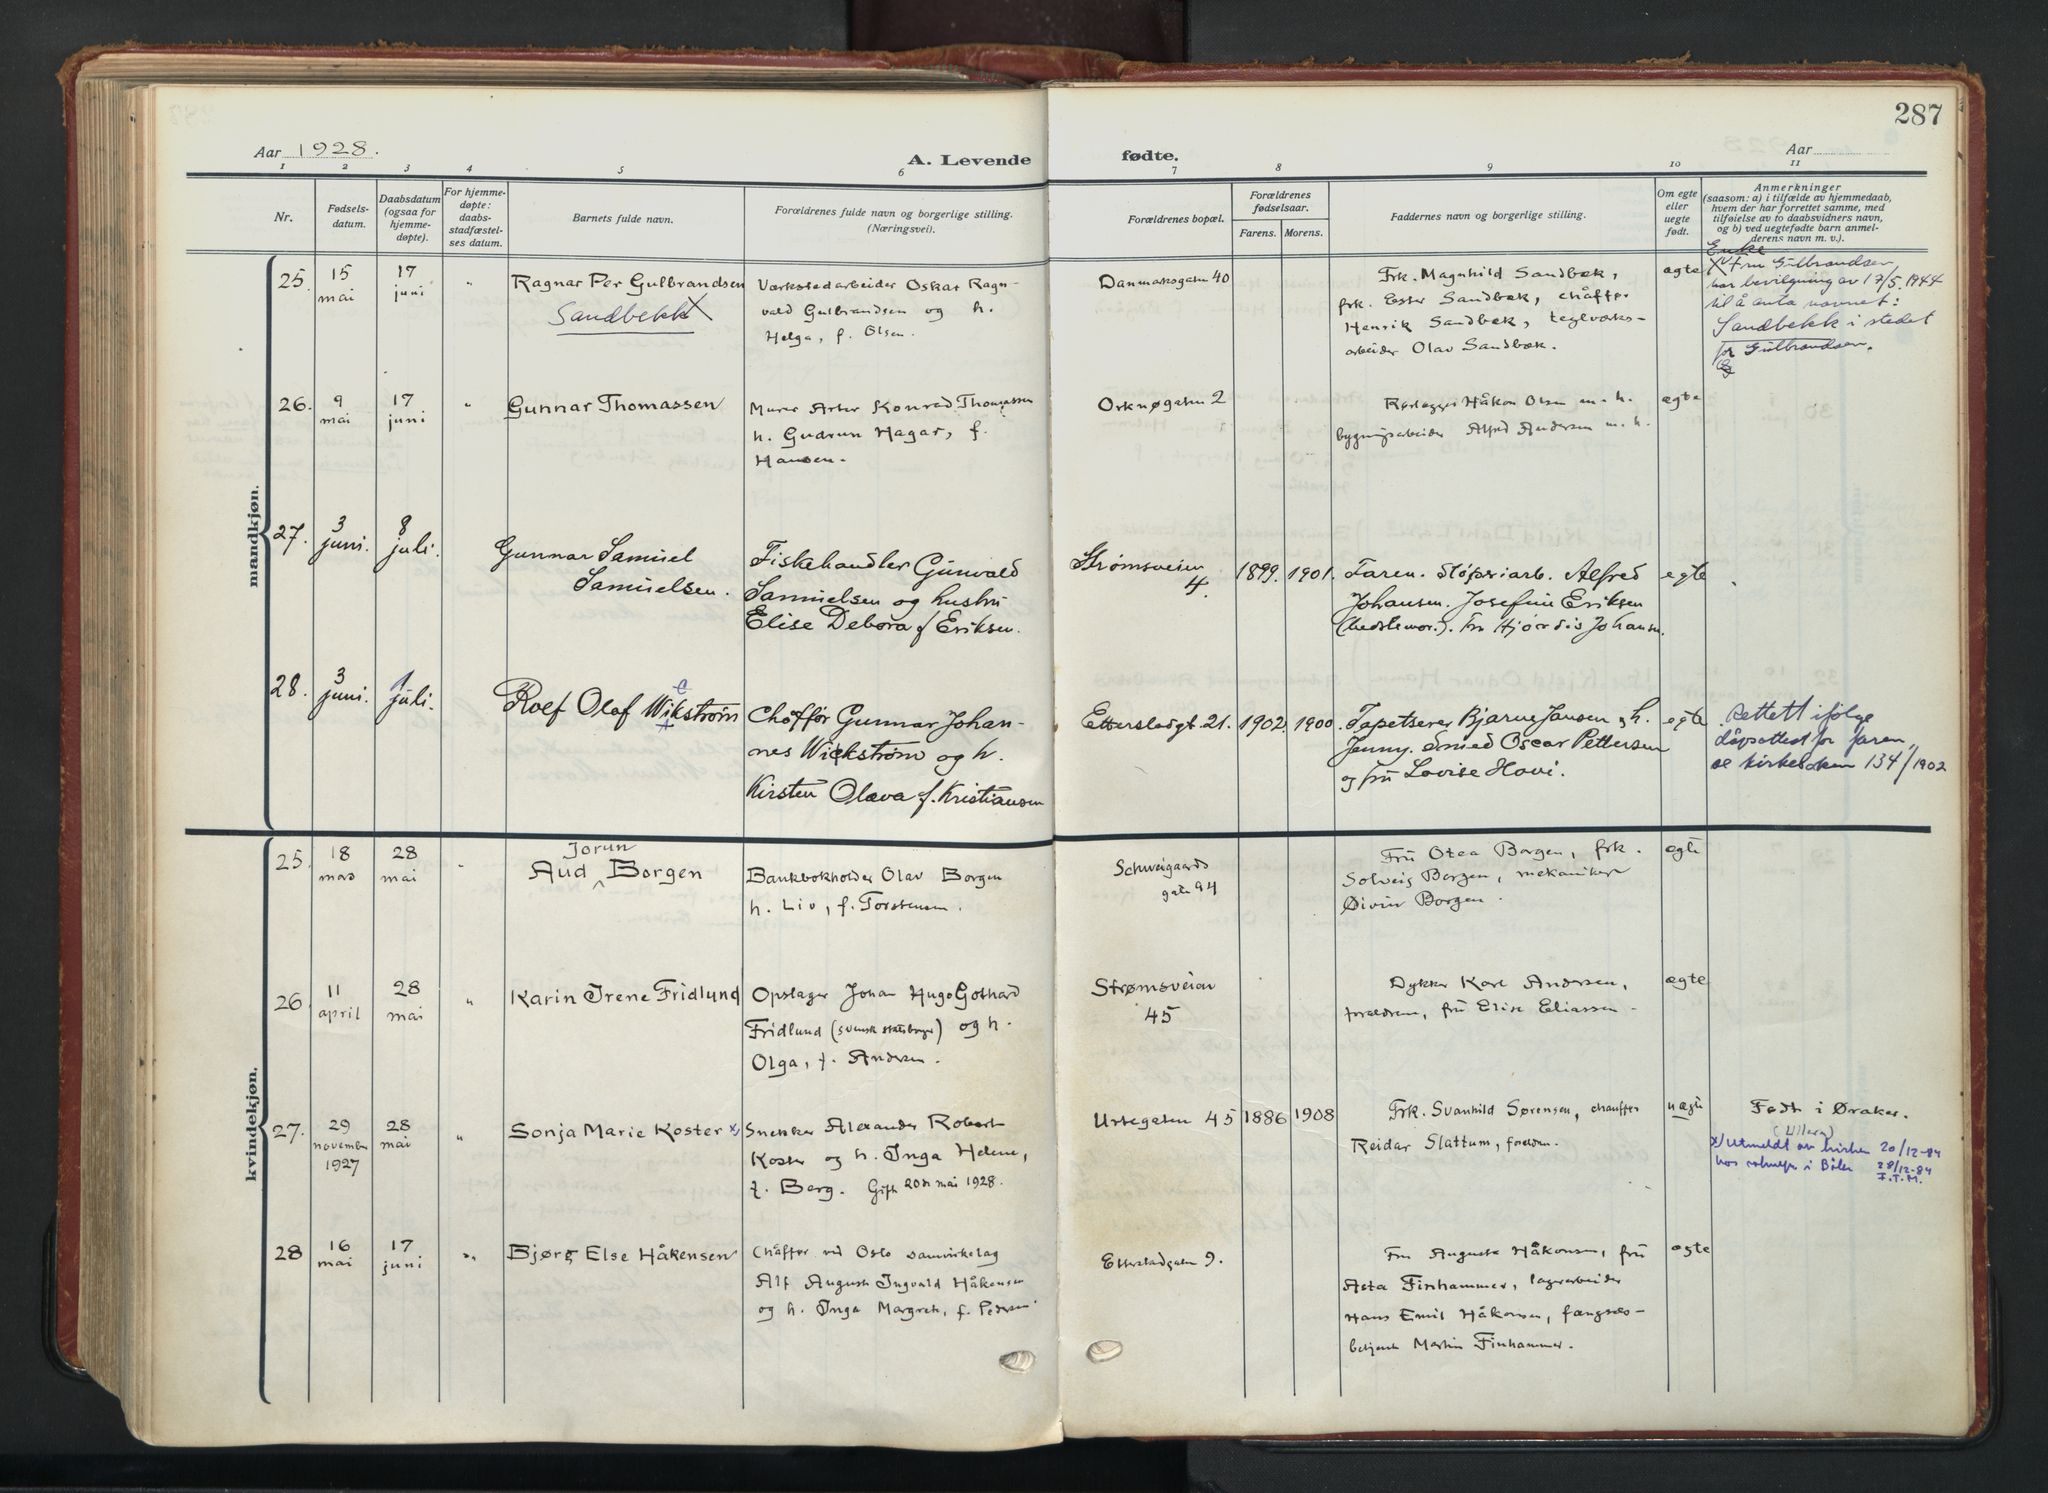 287
Aar 1928.
A. Levende
fødte.
Aar
1 2 3 4 5 6 7 8 9 10 11
Nr.
Fødsels-
datum.
Daabsdatum
(ogsaa for
hjemme-
døpte).
For hjemme-
døpte:
daabs-
stadfæstel-
ses datum.
Barnets fulde navn.
Forældrenes fulde navn og borgerlige stilling.
(Næringsvei).
Forældrenes bopæl.
Forældrenes
fødselsaar.
Farens. Morens.
Faddernes navn og borgerlige stilling.
Om egte
eller
uegte
født.
Anmerkninger
(saasom: a) i tilfælde av hjemmedaab,
hvem der har forrettet samme, med
tilføielse av to daabsvidners navn,
og b) ved uegtefødte barn anmel-
derens navn m. v.).
mandkjøn.
25.
15
mai
17
juni
"
Ragnar Per Gulbrandsen
Sandbekk X
Værkstedarbeider Oskar Ragn-
vald Gulbrandsen og h.
Helga, f. Olsen.
Danmarksgaten 40
Frk. Magnhild Sandbæk,
frk. Ester Sandbæk, chåffør
Henrik Sandbæk, teglværks-
arbeider Olav Sandbæk.
egte
Enke
X Fru Gulbrandsen,
har bevilgning av 17/5. 1944
til å anta navnet:
Sandbekk i stedet
for Gulbrandsen.
26.
9
mai
17
juni
"
Gunnar Thomassen
Murer Artur Konrad Thomassen
h. Gudrun Hagar, f.
Hansen.
Orknøgaten 2
Rørlegger Håkon Olsen m. h.
bygningsarbeider Alfred Andersen m. h.
egte
27.
3
juni.
8
juli.
Gunnar Samuel
Samuelsen.
Fiskehandler Gunvald
Samuelsen og hustru
Elise Debora f Eriksen.
Strømsveien
4.
1899. 1901.
Faren. Sliperiarb. Alfred
Johansen. Josefine Eriksen
(bedstemor). Fru Hjørdis Johansen.
egte
28.
3
juni.
1
juli.
Rolf Olaf Wikstrøm
c
Chåffør Gunnar Johan-
nes Wickstrøm og h.
Kirsten Olava f. Kristiansen
Etterstadgt 21.
1902. 1900.
Tapetserer Bjarne Jansen og h.
Jenny. Smed Oscar Pettersen
og fru Lovise Hovi.
egte
Rettett ifølge
dåpsattest for faren,
se kirkeboken 134/1902
kvindekjøn.
25.
18
mars
28
mai
"
Jorun
Aud Borgen
Bankbokholder Olav Borgen
h. Liv, f. Torstensen.
Schweigaards
gate 94
Fru Otea Borgen, frk.
Solveig Borgen, mekaniker
Øivin Borgen.
egte
26.
11
april
28
mai
"
Karin Irene Fridlund
Opslager Johan Hugo Gothard
Fridlund (svensk statsborger) og h.
Olga, f. Andersen.
Strømsveien
45
Dykker Karl Andersen,
foreldrene, fru Elise Eliassen
egte
27.
29
november
1927
28
mai
"
Sonja Marie Koster x)
Snekker Alexander Robert
Koster og h. Inga Helene,
f. Berg. Gift 20de mai 1928.
Urtegaten 45
1886 1908
Frk. Svanhild Sørensen, chauffør
Reidar Slattum, foreldrene.
uegte
Født i Øraker.
(Ullern)
x) Utmeldt av kirken 20/12-84
hos sokneprs i Bøler 28/12-84
F.T.M.
28
16
mai
17
juni
"
Bjørg Else Håkensen
Chåffør ved Oslo samvirkelag
Alf August Ingvald Håkensen
og h. Inga Margreth, f. Pedersen
Etterstadgaten 9.
Fru Augusta Håkonsen, fru
Asta Finhammer, lagerarbeider
Hans Emil Håkonsen, fængsels-
betjent Martin Finhammer.
egte